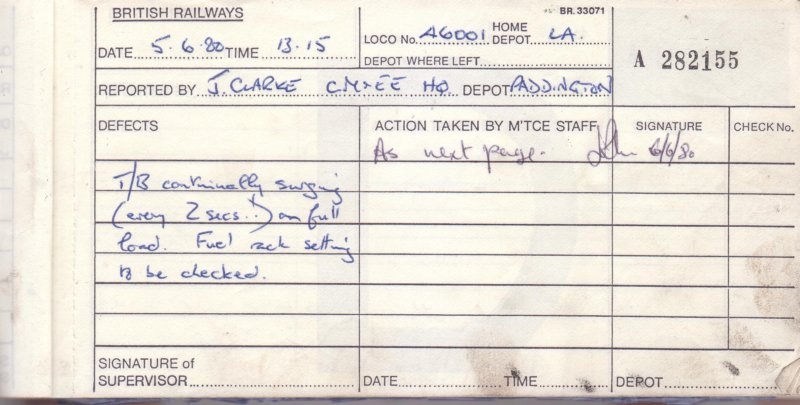 BRITISH RAILWAYS
BR. 33071
DATE 5.6.80 TIME 13.15
LOCO No. 46001 HOME DEPOT LA.
DEPOT WHERE LEFT
A 282155
REPORTED BY J. CLARKE CM&EE HQ. DEPOT PADDINGTON
DEFECTS
ACTION TAKEN BY M'TCE STAFF
SIGNATURE
CHECK No.
As next page. 6/6/80
T/B continually surging
(every 2 secs..) on full
load. Fuel rack setting
to be checked.
SIGNATURE of
SUPERVISOR
DATE TIME DEPOT